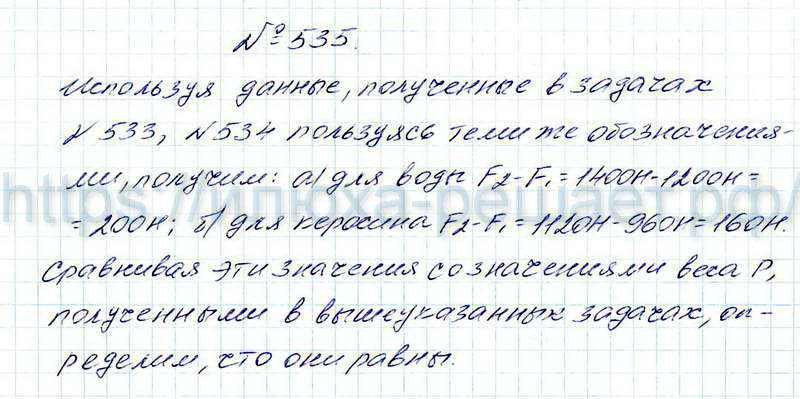 № 535.
Используя данные, полученные в задачах
№ 533, № 534 пользуясь теми же обозначения-
ми, получим: а) для воды F₂-F₁ = 1400Н-1200Н =
https://илюха-решает.рф/
= 200Н; б) для керосина F₂-F₁ = 1120Н-960Н = 160Н.
Сравнивая эти значения со значениями веса Р,
полученными в вышеуказанных задачах, оп-
ределим, что они равны.